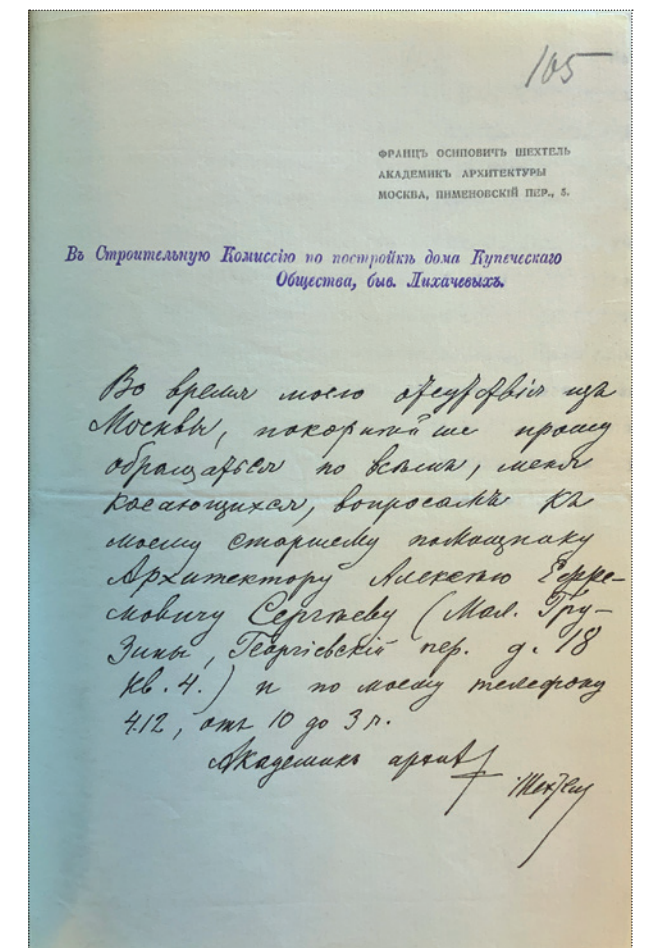 105
ФРАНЦЪ ОСИПОВИЧЪ ШЕХТЕЛЬ
АКАДЕМИКЪ АРХИТЕКТУРЫ
МОСКВА, ПИМЕНОВСКІЙ ПЕР., 5.
Въ Строительную Комиссію по постройкѣ дома Купеческаго
Общества, быв. Лихачевыхъ.
Во время моего отсутствія изъ
Москвы, покорнѣйше прошу
обращаться по всѣмъ, меня
касающихся, вопросамъ къ
моему старшему помощнику
Архитектору Алексѣю Ефре-
мовичу Сергѣеву (Мал. Гру-
зины, Георгіевскій пер. д. 18
кв. 4.) и по моему телефону
412, отъ 10 до 3 ч.
Академикъ архит
Шехтель